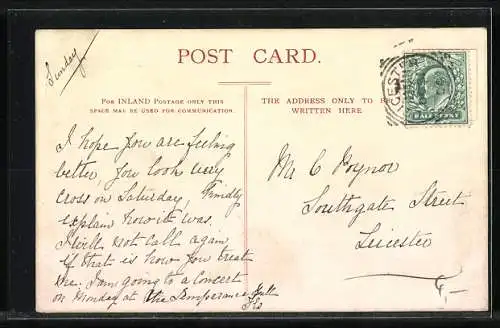 Sunday
POST CARD.
FOR INLAND POSTAGE ONLY THIS
SPACE MAY BE USED FOR COMMUNICATION.
THE ADDRESS ONLY TO BE
WRITTEN HERE
HALFPENNY
I hope you are feeling
better, you look very
cross on Saturday, Kindly
explain how it was.
I will not call again
if that is how you treat
me. I am going to a Concert
on Monday at the Temperance Hall
Mr C Poynor
Southgate Street
Leicester
4,-